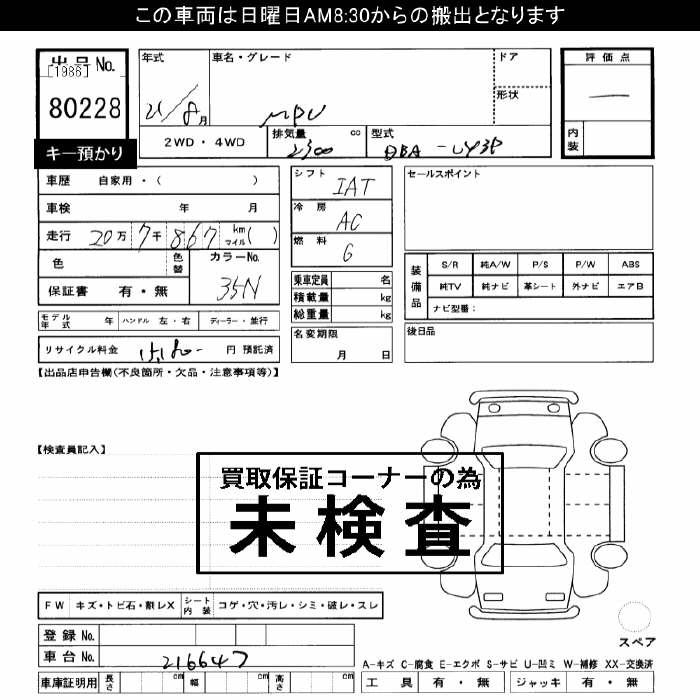 この車両は日曜日AM8:30からの搬出となります
出品 No.
[1986]
80228
キー預かり
年式
21/8月
車名・グレード
MPV
ドア
形状
評価点
一
内装
2WD・4WD
排気量 cc
2300
型式
DBA-LY3P
車歴 自家用・( )
車検 年 月
走行 20万 7千 867 km マイル( )
色
色替
カラーNo.
35N
保証書 有・無
シフト
IAT
冷房
AC
燃料
G
セールスポイント
乗車定員 名
積載量 kg
総重量 kg
装備品
S/R 純A/W P/S P/W ABS
純TV 純ナビ 革シート 外ナビ エアB
ナビ型番:
モデル年式 年 ハンドル 左・右 ディーラー・並行
名変期限
月 日
後日品
リサイクル料金 円 預託済
【出品店申告欄(不良箇所・欠品・注意事項等)】
【検査員記入】
買取保証コーナーの為
未検査
FW キズ・トビ石・割レX シート内装 コゲ・穴・汚レ・シミ・破レ・スレ
登録 No.
車台 No.
216647
スペア
A-キズ C-腐食 E-エクボ S-サビ U-凹ミ W-補修 XX-交換済
車庫証明用 長さ cm 幅 cm 高さ cm
工具 有・無 ジャッキ 有・無